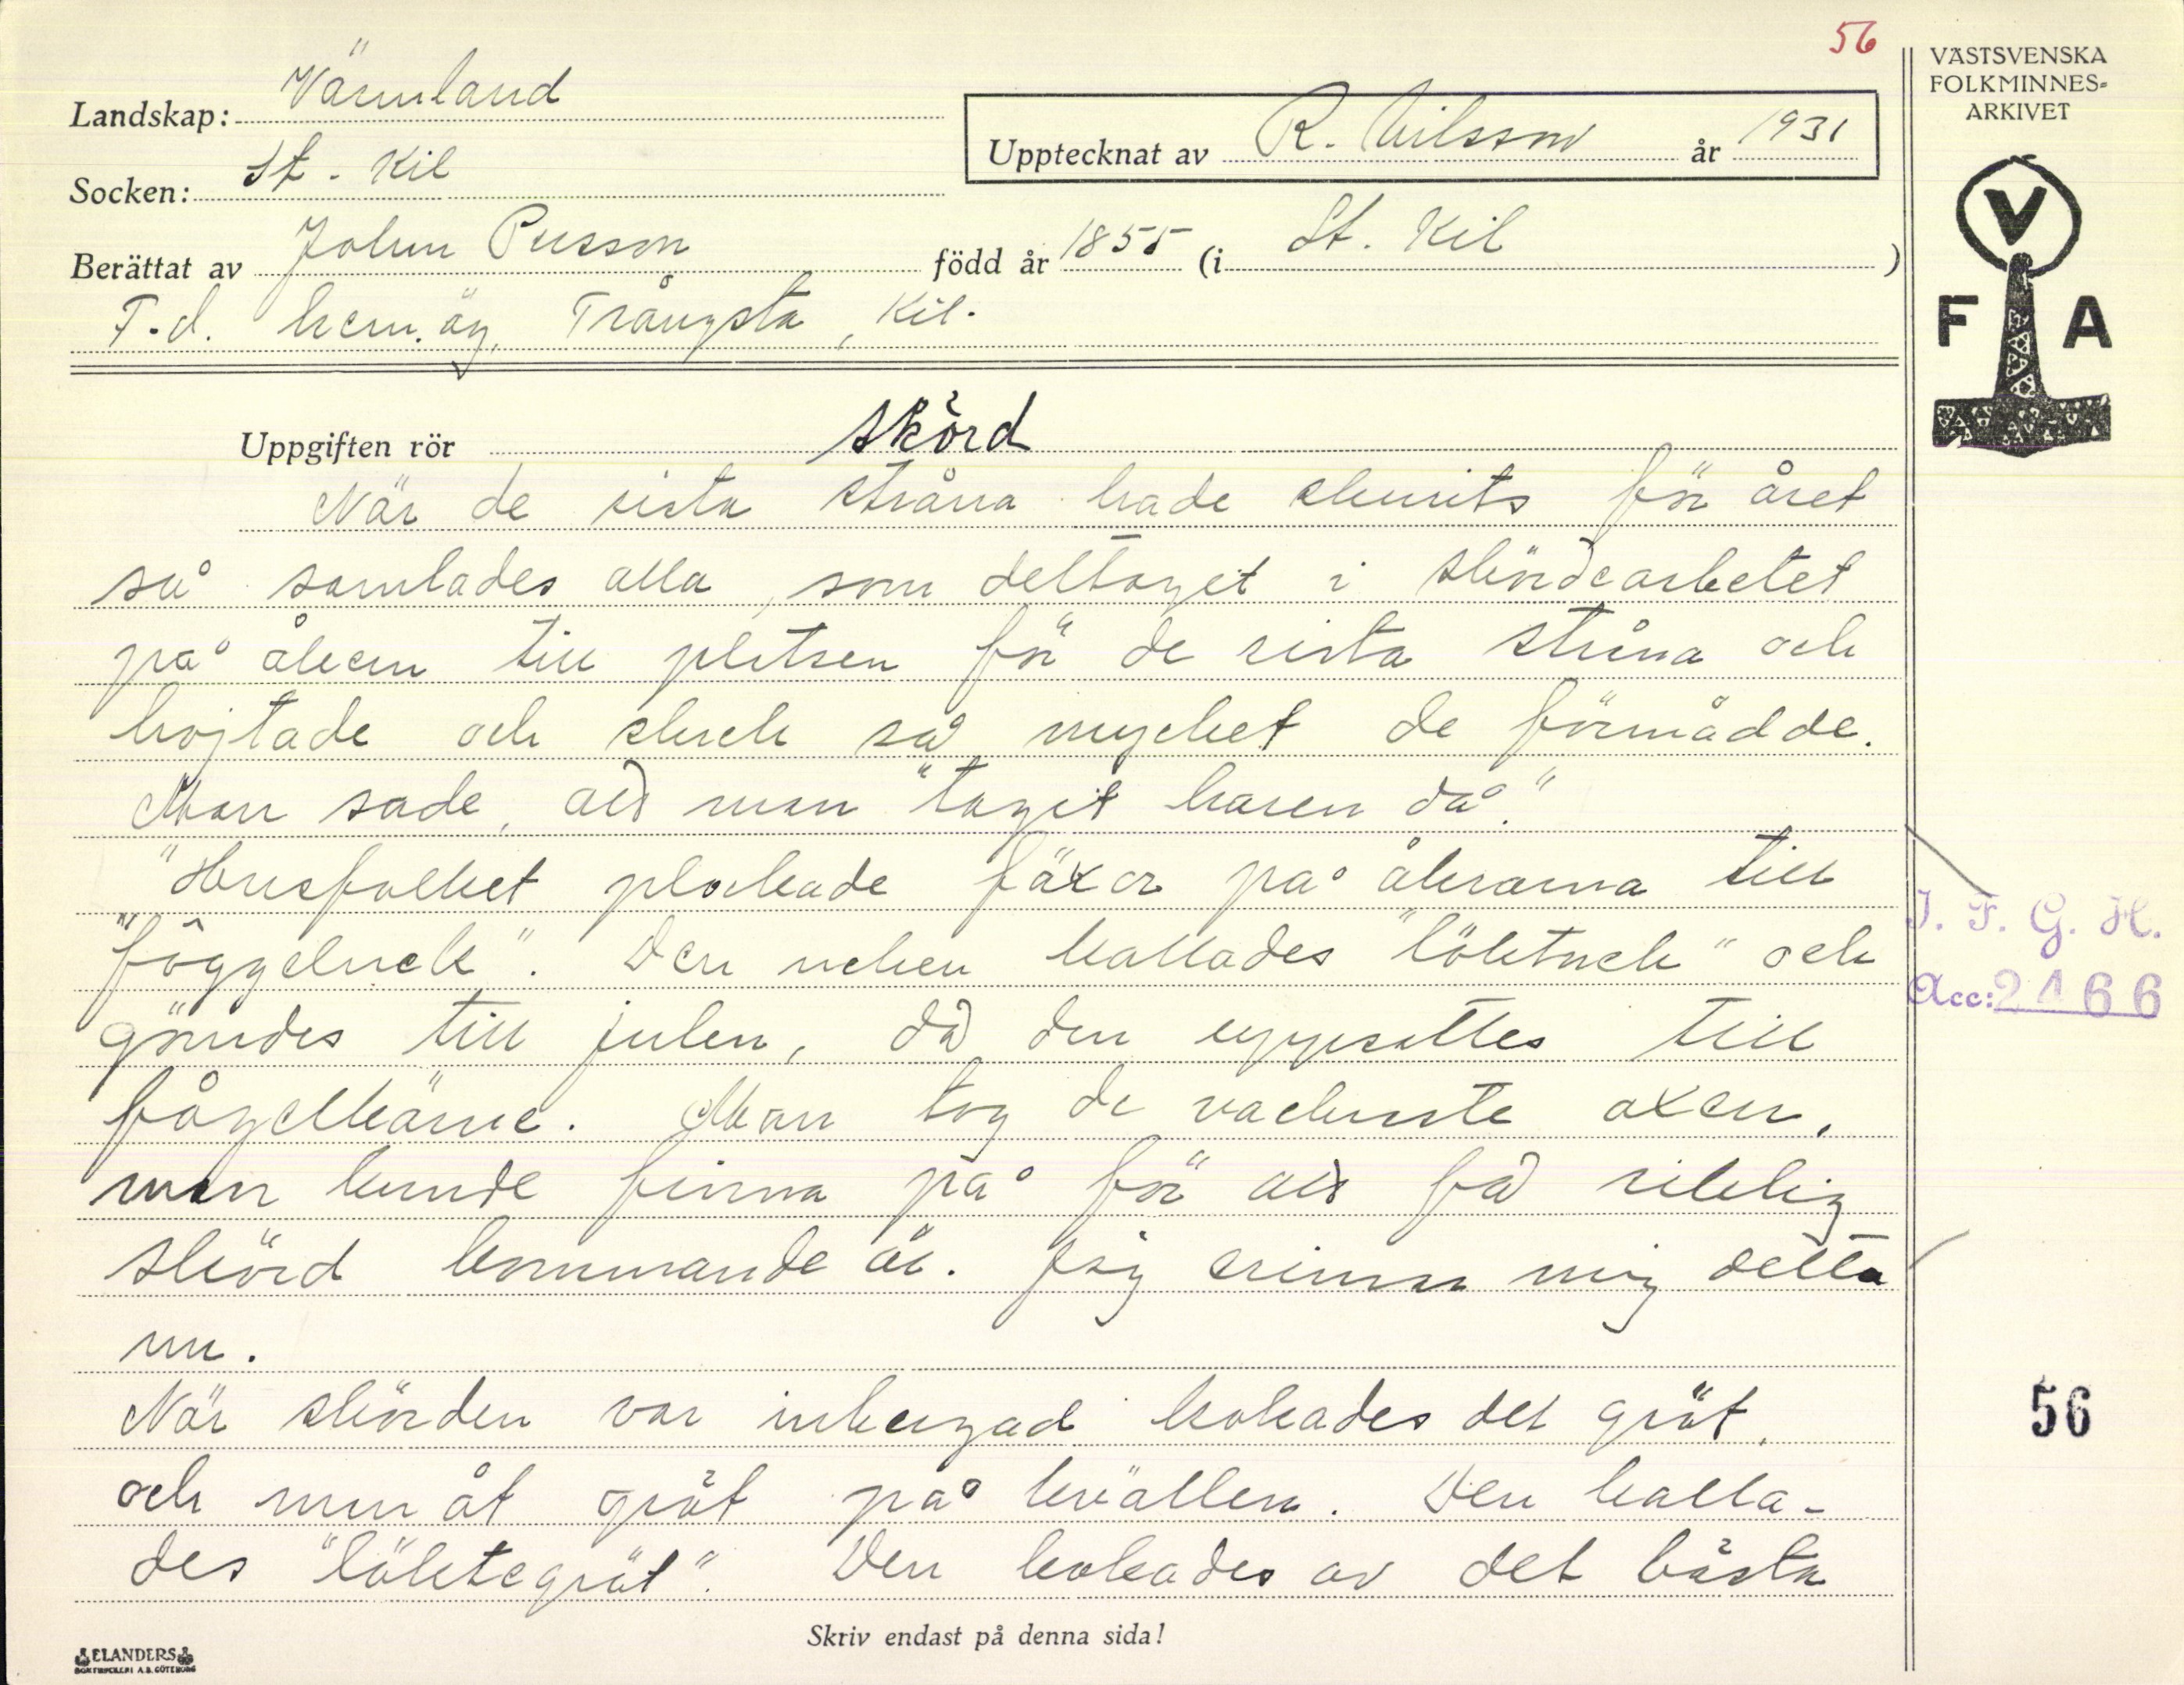 56
VÄSTSVENSKA
FOLKMINNES-
ARKIVET
Landskap: Värmland
Upptecknat av R. Nilsson år 1931
Socken: St. Kil
Berättat av John Persson född år 1855 (i St. Kil)
F.d. hem.äg. Trångsta, Kil.
V
F A
Uppgiften rör skörd
När de sista stråna hade skurits för året
så samlades alla, som deltaget i skördearbetet
på åkern till platsen för de sista stråna och
hojtade och skrek så mycket de förmådde.
Man sade, att man "tagit haren då".
"Husfolket plockade fäxer på åkrarna till
"föggelnek". Den neken kallades "löktnek" och
gömdes till julen, då den uppsattes till
fågelkärve. Man tog de vackraste axen,
man kunde finna på för att få riklig
skörd kommande år. Jag erinrar mig detta
nu.
När skörden var inbergad kokades det gröt,
och man åt gröt på kvällen. Den kalla-
des "löktegröt". Den kokades av det bästa
I. F. G. H.
Acc: 2466
56
Skriv endast på denna sida!
ELANDERS
BOKTRYCKERI A.B. GÖTEBORG